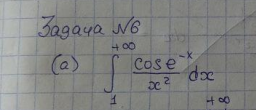 Задача №6
(a) \int_{1}^{+\infty} \frac{\cos e^{-x}}{x^2} dx
+∞